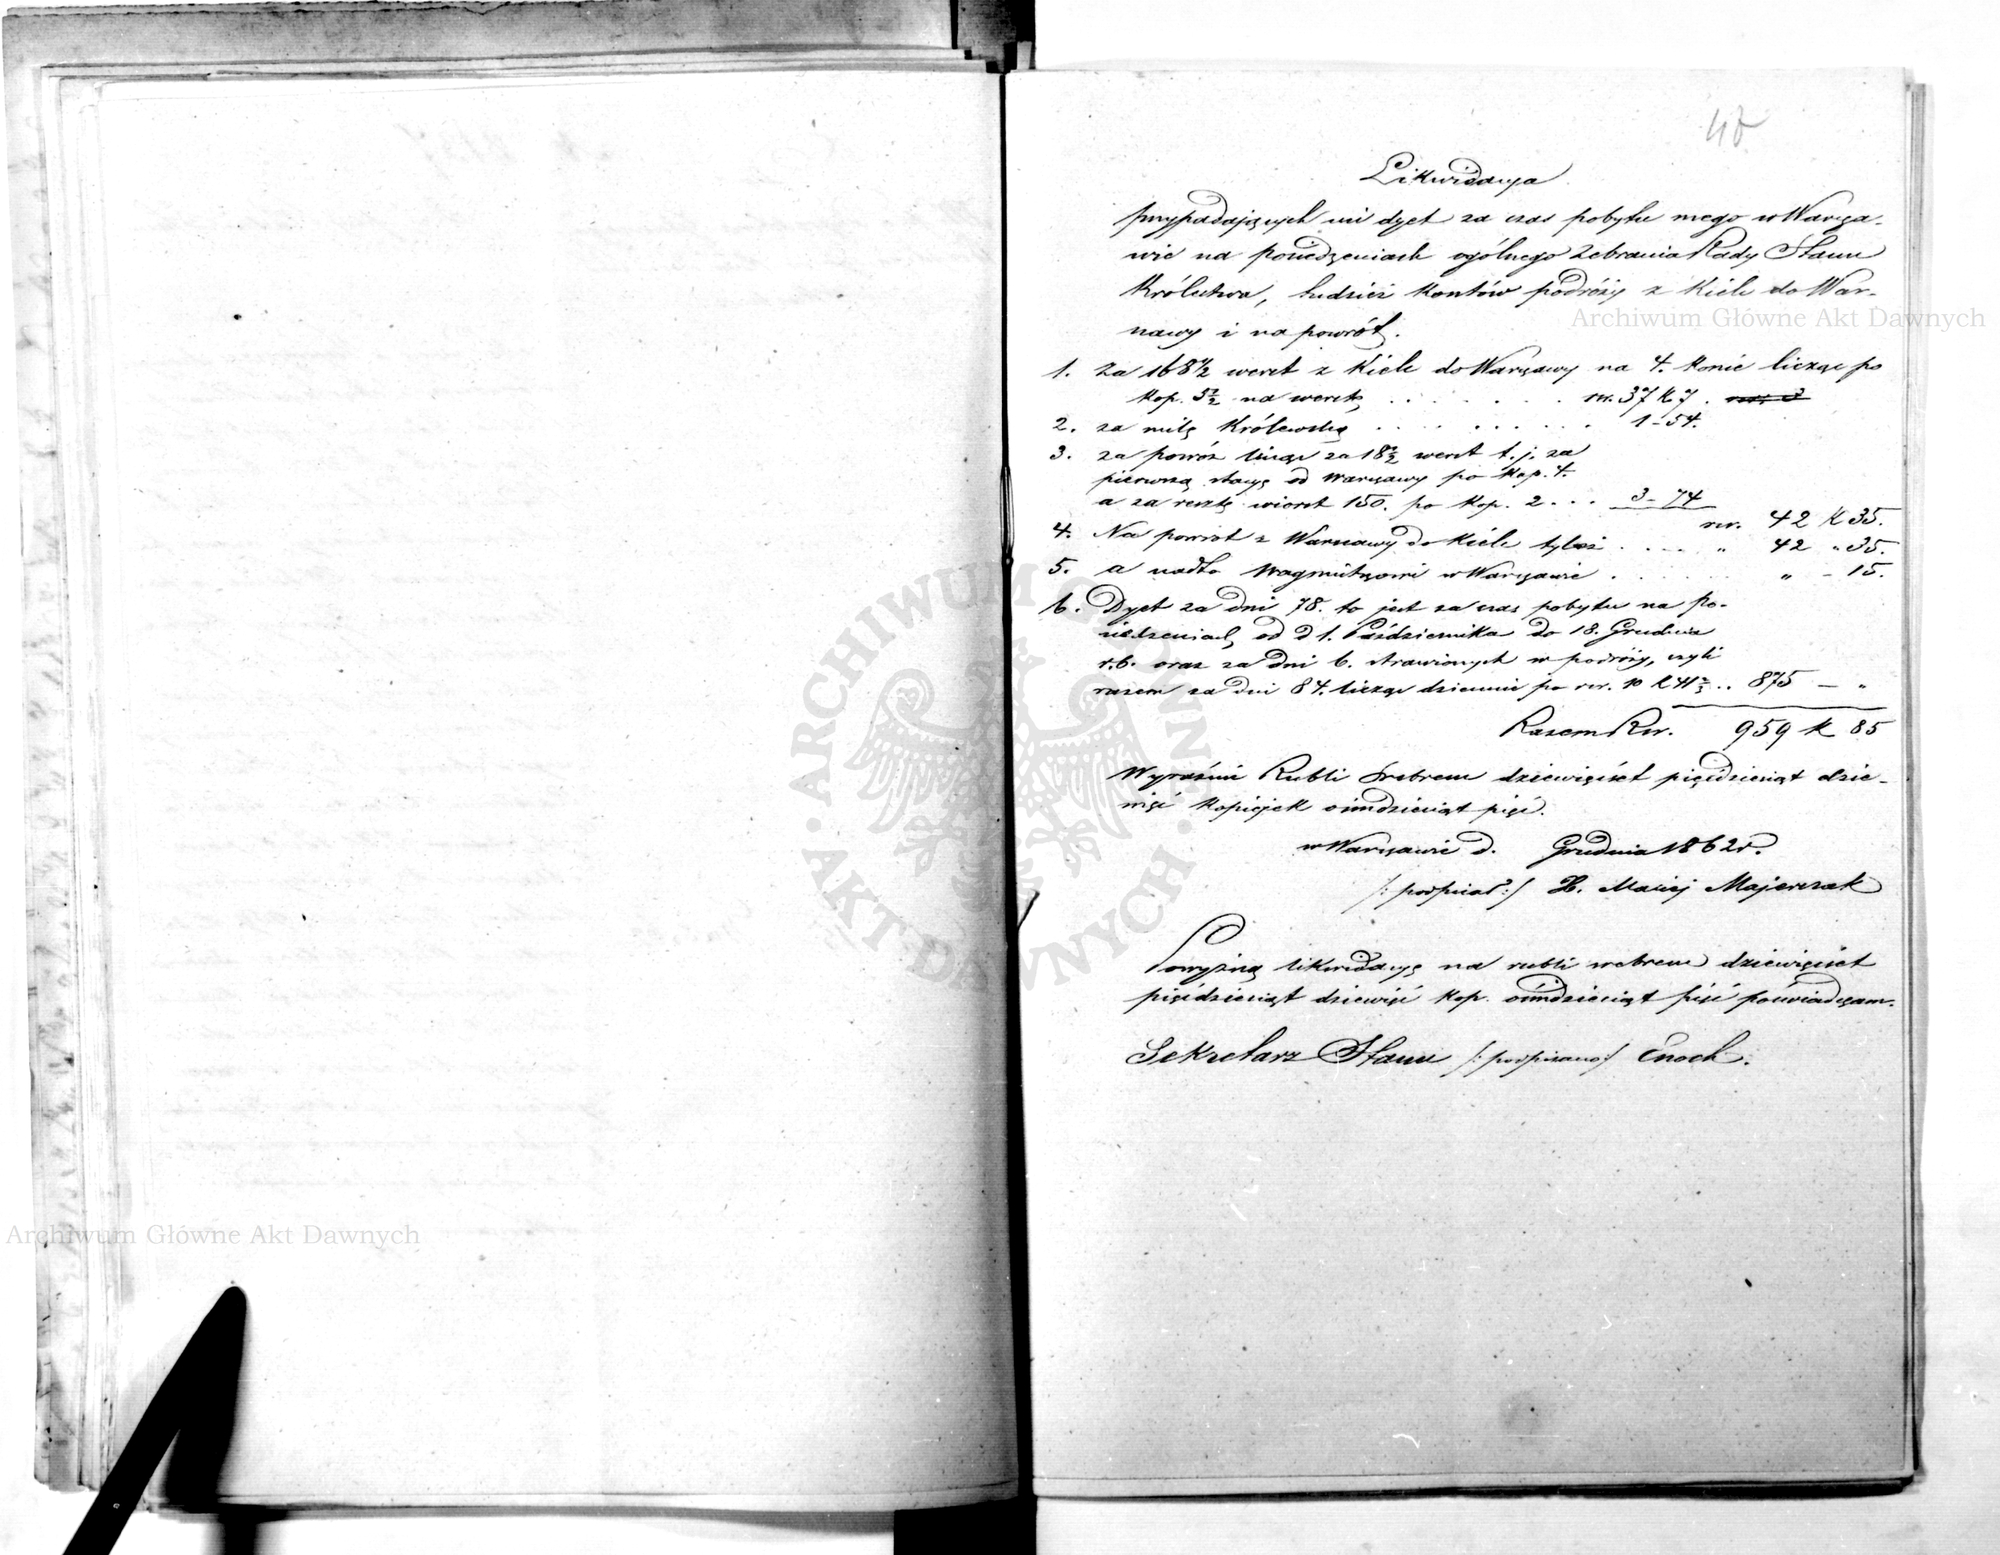 Likwidacya
przypadających mi dyet za czas pobytu mego w Warsza-
wie na posiedzeniach ogólnego Zebrania Rady Stanu
Królestwa, tudzież kosztów podróży z Kielc do War-
szawy i na powrót.
1. Za 168 1/2 werst z Kielc do Warszawy na 4. konie licząc po
kop. 5 1/2 na werstę . . . . . . . rsr. 37 k 7.
2. za milę Królewską . . . . . . . . 1 - 54.
3. za powóz licząc za 18 1/2 werst t.j. za
pierwszą stacyę od Warszawy po kop. 4.
a za resztę wiorst 150. po kop. 2 . . . 3 - 74
rsr. 42 k 35.
4. Na powrót z Warszawy do Kielc tyleż . . . . " 42 " 35.
5. a nadto Wagmistrzowi w Warszawie . . . . . " - 15.
6. Dyet za dni 78. to jest za czas pobytu na po-
siedzeniach od d 1. Października do 18. Grudnia
r.b. oraz za dni 6. strawionych w podróży, czyli
razem za dni 84. licząc dziennie po rsr. 10 k 41 2/3 . . 875 — "
Razem Rsr. 959 k 85
Wyraźnie Rubli Srebrem dziewięćset pięćdziesiąt dzie-
więć kopiejek ośmdziesiąt pięć.
w Warszawie d. Grudnia 1862 r.
/: podpisał :/ X. Maciej Majerczak
Powyższą likwidacyę na rubli srebrem dziewięćset
pięćdziesiąt dziewięć kop. ośmdziesiąt pięć poświadczam.
Sekretarz Stanu /: podpisano :/ Enoch.
Archiwum Główne Akt Dawnych
Archiwum Główne Akt Dawnych
ARCHIWUM GŁÓWNE AKT DAWNYCH